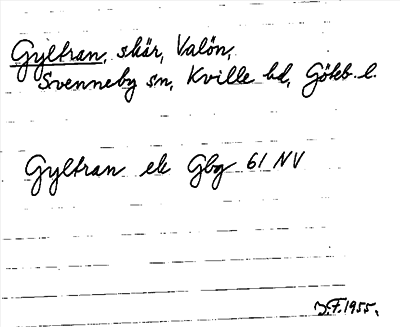 Gyltran, skär, Valön,
Svenneby sn, Kville hd, Göteb. l.
Gyltran ek Gbg 61 NV
J.F. 1955.